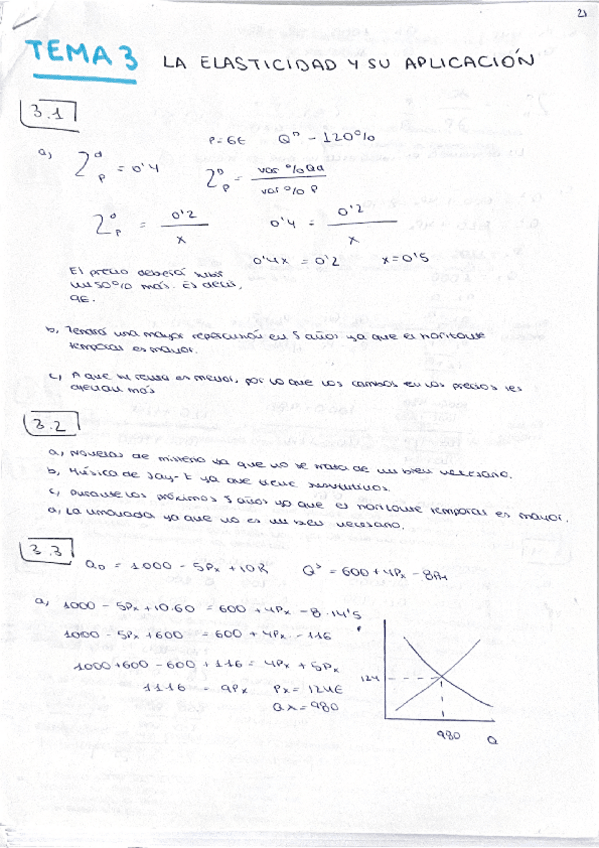 21
TEMA 3 LA ELASTICIDAD Y SU APLICACIÓN
3.1
P=6€ Q^D - 120%
a, Σ^D_P = 0'4 Σ^D_P = var % Qd / var % P
Σ^D_P = 0'2 / x 0'4 = 0'2 / x
0'4x = 0'2 x = 0'5
El precio deberá subir
un 50% más. Es decir,
9€.
b, Tendrá una mayor repercusión en 5 años ya que el horizonte
temporal es mayor.
c, A que su renta es menor, por lo que los cambios en los precios les
afectan más
3.2
a, Novelas de misterio ya que no se trata de un bien necesario.
b, Música de Jay-Z ya que tiene sustitutivos.
c, durante los próximos 5 años ya que el horizonte temporal es mayor.
d, La limonada ya que no es un bien necesario.
3.3
Q_D = 1000 - 5Px + 10R Q^S = 600 + 4Px - 8PH
a, 1000 - 5Px + 10·60 = 600 + 4Px - 8·14'5
1000 - 5Px + 600 = 600 + 4Px - 116
1000 + 600 - 600 + 116 = 4Px + 5Px
1116 = 9Px Px = 124€
Qx = 980
124
980 Q